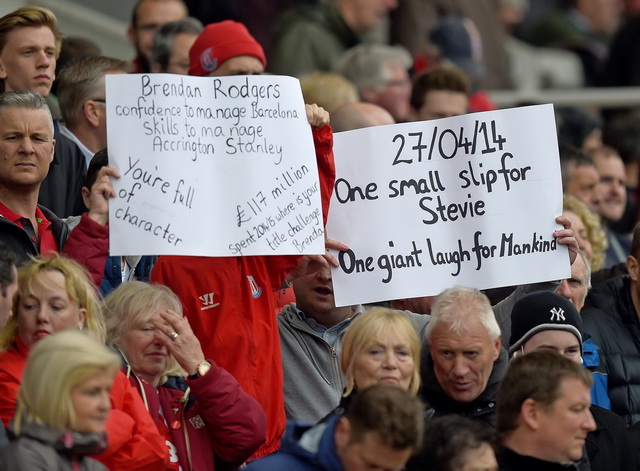 Brendan Rodgers
confidence to manage Barcelona
skills, to manage
Accrington Stanley
You're full
of
character
£117 million
spent 2014/15 where is your
title challenge
Brenda
27/04/14
One small slip for
Stevie
One giant laugh for Mankind
NY